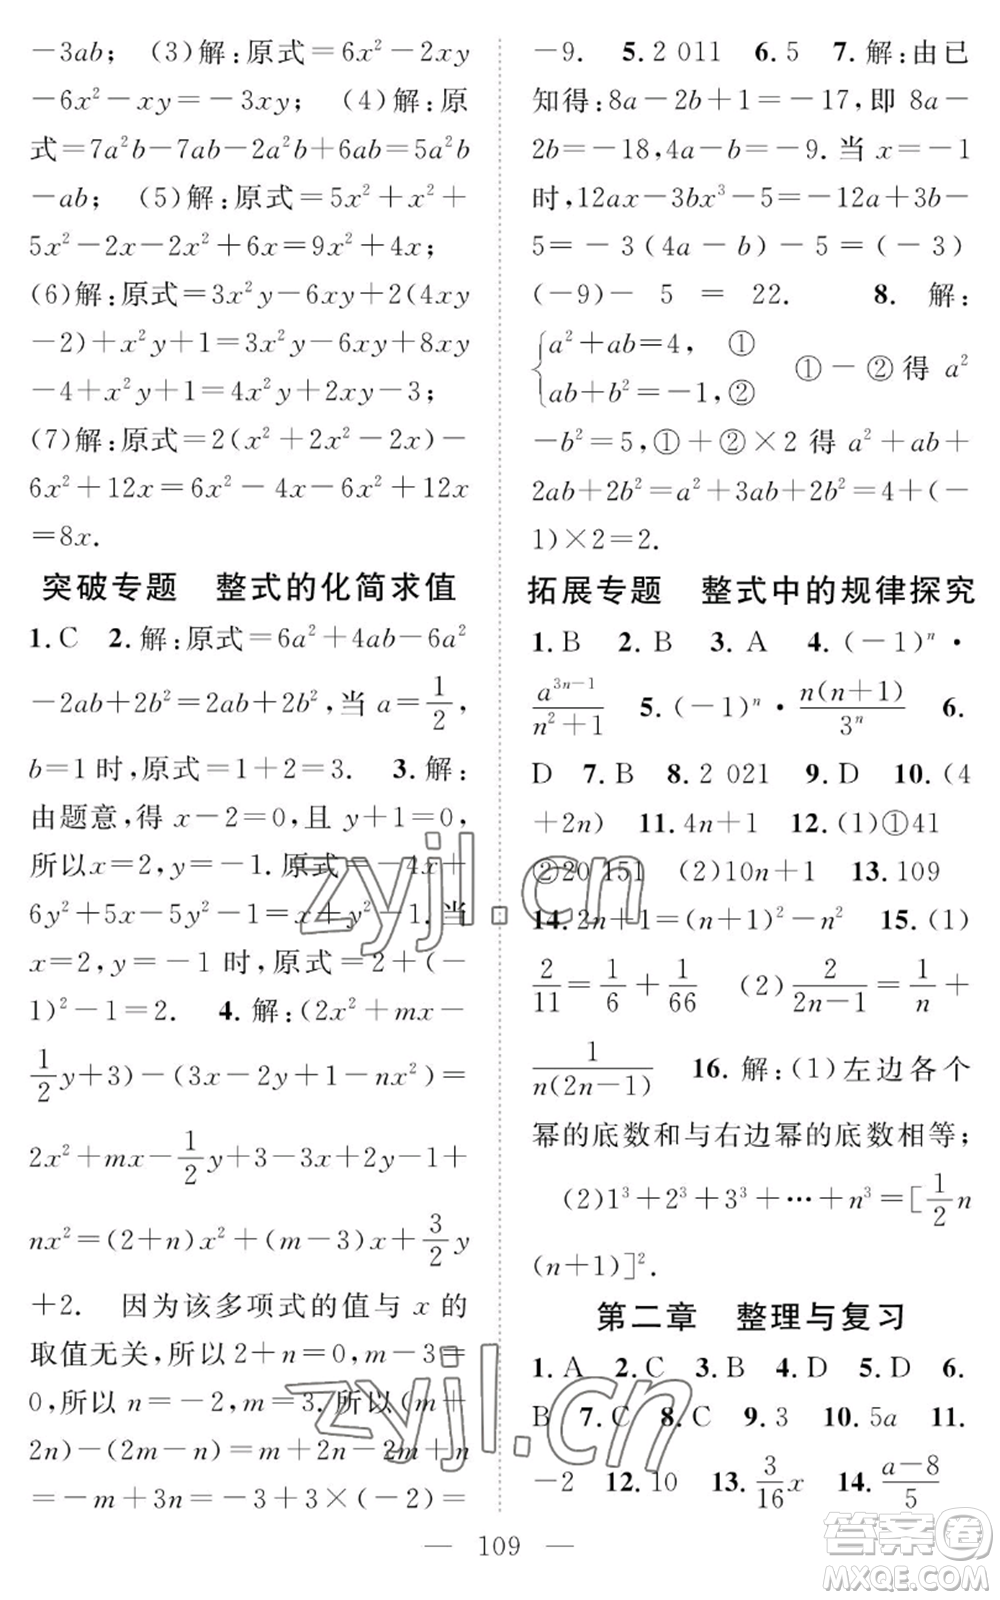 -3ab; (3)解:原式=6x²-2xy
-6x²-xy=-3xy; (4)解:原
式=7a²b-7ab-2a²b+6ab=5a²b
-ab; (5)解:原式=5x²+x²+
5x²-2x-2x²+6x=9x²+4x;
(6)解:原式=3x²y-6xy+2(4xy
-2)+x²y+1=3x²y-6xy+8xy
-4+x²y+1=4x²y+2xy-3;
(7)解:原式=2(x²+2x²-2x)-
6x²+12x=6x²-4x-6x²+12x
=8x.
突破专题 整式的化简求值
1.C 2.解:原式=6a²+4ab-6a²
-2ab+2b²=2ab+2b²,当a=1/2,
b=1时,原式=1+2=3. 3.解:
由题意,得x-2=0,且y+1=0,
所以x=2,y=-1.原式=-4x+
6y²+5x-5y²-1=x+y²-1.当
x=2,y=-1时,原式=2+(-
1)²-1=2. 4.解:(2x²+mx-
1/2y+3)-(3x-2y+1-nx²)=
2x²+mx-1/2y+3-3x+2y-1+
nx²=(2+n)x²+(m-3)x+3/2y
+2. 因为该多项式的值与x的
取值无关,所以2+n=0,m-3=
0,所以n=-2,m=3.所以(m+
2n)-(2m-n)=m+2n-2m+n
=-m+3n=-3+3×(-2)=
-9. 5.2 011 6.5 7.解:由已
知得:8a-2b+1=-17,即8a-
2b=-18,4a-b=-9.当x=-1
时,12ax-3bx³-5=-12a+3b-
5=-3(4a-b)-5=(-3)
(-9)-5=22. 8.解:
{a²+ab=4, ①
ab+b²=-1,② ①-②得a²
-b²=5,①+②×2得a²+ab+
2ab+2b²=a²+3ab+2b²=4+(-
1)×2=2.
拓展专题 整式中的规律探究
1.B 2.B 3.A 4.(-1)ⁿ·
a³ⁿ⁻¹/(n²+1) 5.(-1)ⁿ·n(n+1)/3ⁿ 6.
D 7.B 8.2 021 9.D 10.(4
+2n) 11.4n+1 12.(1)①41
②20 151 (2)10n+1 13.109
14.2n+1=(n+1)²-n² 15.(1)
2/11=1/6+1/66 (2)2/(2n-1)=1/n+
1/(n(2n-1)) 16.解:(1)左边各个
幂的底数和与右边幂的底数相等;
(2)1³+2³+3³+…+n³=[1/2n
(n+1)]².
第二章 整理与复习
1.A 2.C 3.B 4.D 5.D 6.
B 7.C 8.C 9.3 10.5a 11.
-2 12.10 13.3/16x 14.(a-8)/5
— 109 —
zyjl.cn
zyjl.cn
答案圈
MXQE.COM